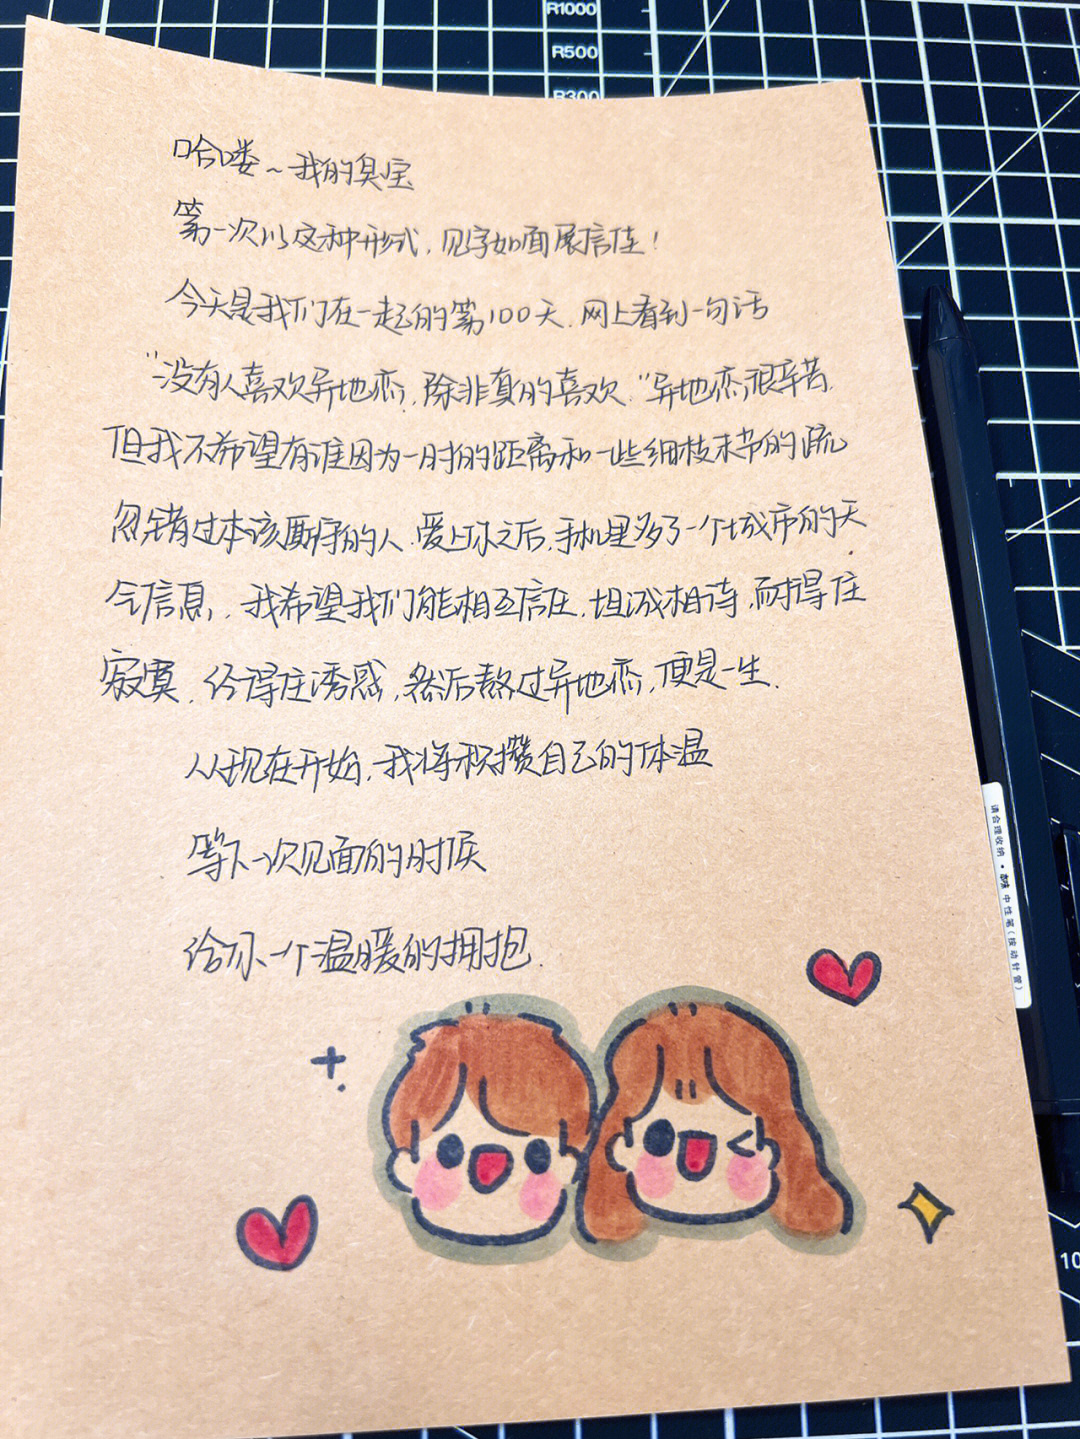 R1000
R500
R300
哈喽~我的臭宝
第一次以这种形式,见字如面展信佳!
今天是我们在一起的第100天.网上看到一句话
"没有人喜欢异地恋,除非真的喜欢."异地恋很辛苦.
但我不希望有谁因为一时的距离和一些细枝末节的疏
忽错过本该厮守的人.爱上你之后,手机里多了一个城市的天
气信息,我希望我们能相互信任,坦诚相待,耐得住
寂寞.经得住诱惑,然后熬过异地恋,便是一生.
从现在开始,我将积攒自己的体温
等下一次见面的时候
给你一个温暖的拥抱.
请合理收纳·
中性笔(按动针管)
10